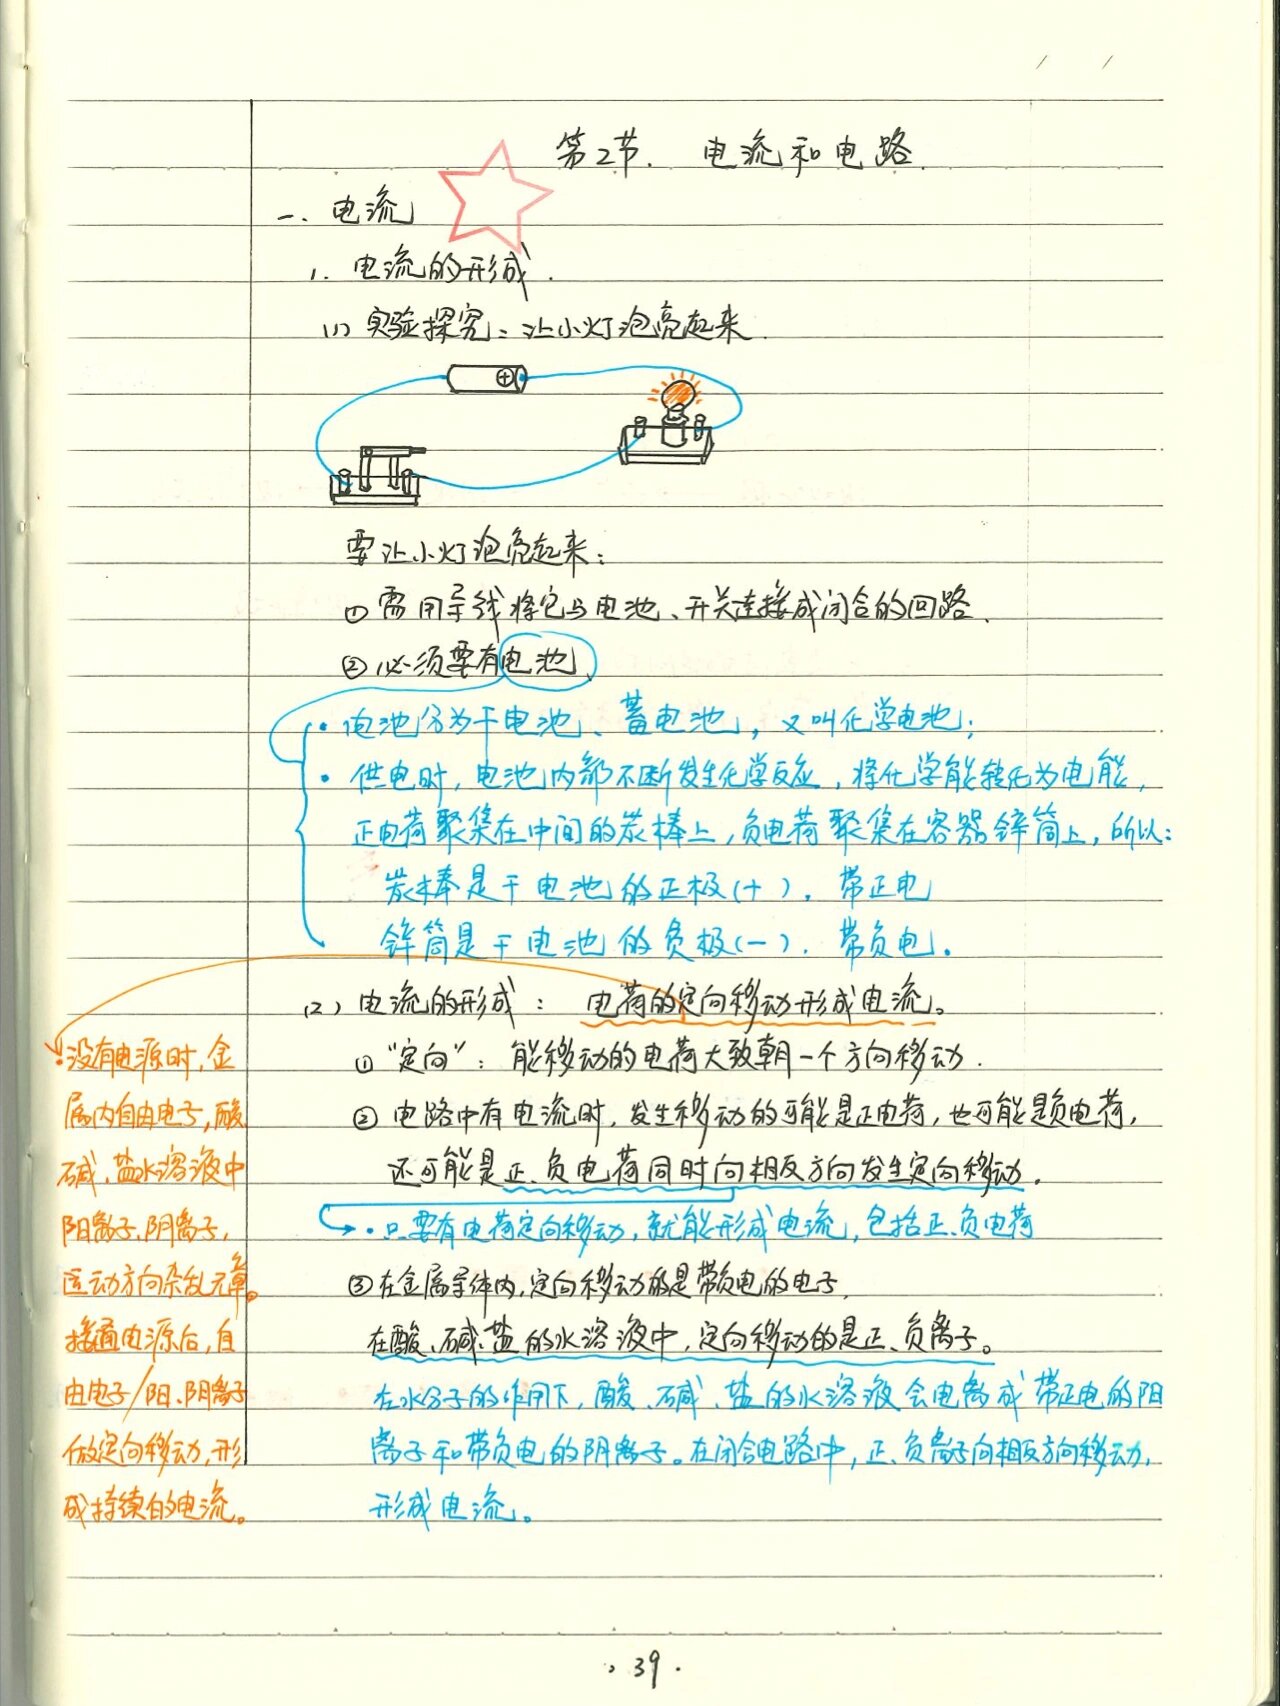 第2节. 电流和电路.
一. 电流
1. 电流的形成.
(1) 实验探究: 让小灯泡亮起来.
要让小灯泡亮起来:
① 需用导线将它与电池、开关连接成闭合的回路.
② 必须要有电池.
• 电池分为干电池、蓄电池, 又叫化学电池;
• 供电时, 电池内部不断发生化学反应, 将化学能转化为电能,
正电荷聚集在中间的炭棒上, 负电荷聚集在容器锌筒上, 所以:
炭棒是干电池的正极(+). 带正电
锌筒是干电池的负极(-). 带负电。
(2) 电流的形成: 电荷的定向移动形成电流。
① "定向": 能移动的电荷大致朝一个方向移动.
② 电路中有电流时, 发生移动的可能是正电荷, 也可能是负电荷,
还可能是正、负电荷同时向相反方向发生定向移动.
• 只要有电荷定向移动, 就能形成电流, 包括正、负电荷
③ 在金属导体内, 定向移动的是带负电的电子,
在酸、碱、盐的水溶液中, 定向移动的是正、负离子。
在水分子的作用下, 酸、碱、盐的水溶液会电离成带正电的阳
离子和带负电的阴离子。在闭合电路中, 正、负离子向相反方向移动,
形成电流。
•没有电源时, 金
属内自由电子, 酸
碱、盐水溶液中
阳离子、阴离子,
运动方向杂乱无章。
接通电源后, 自
由电子/阳、阴离子
做定向移动, 形
成持续的电流。
39